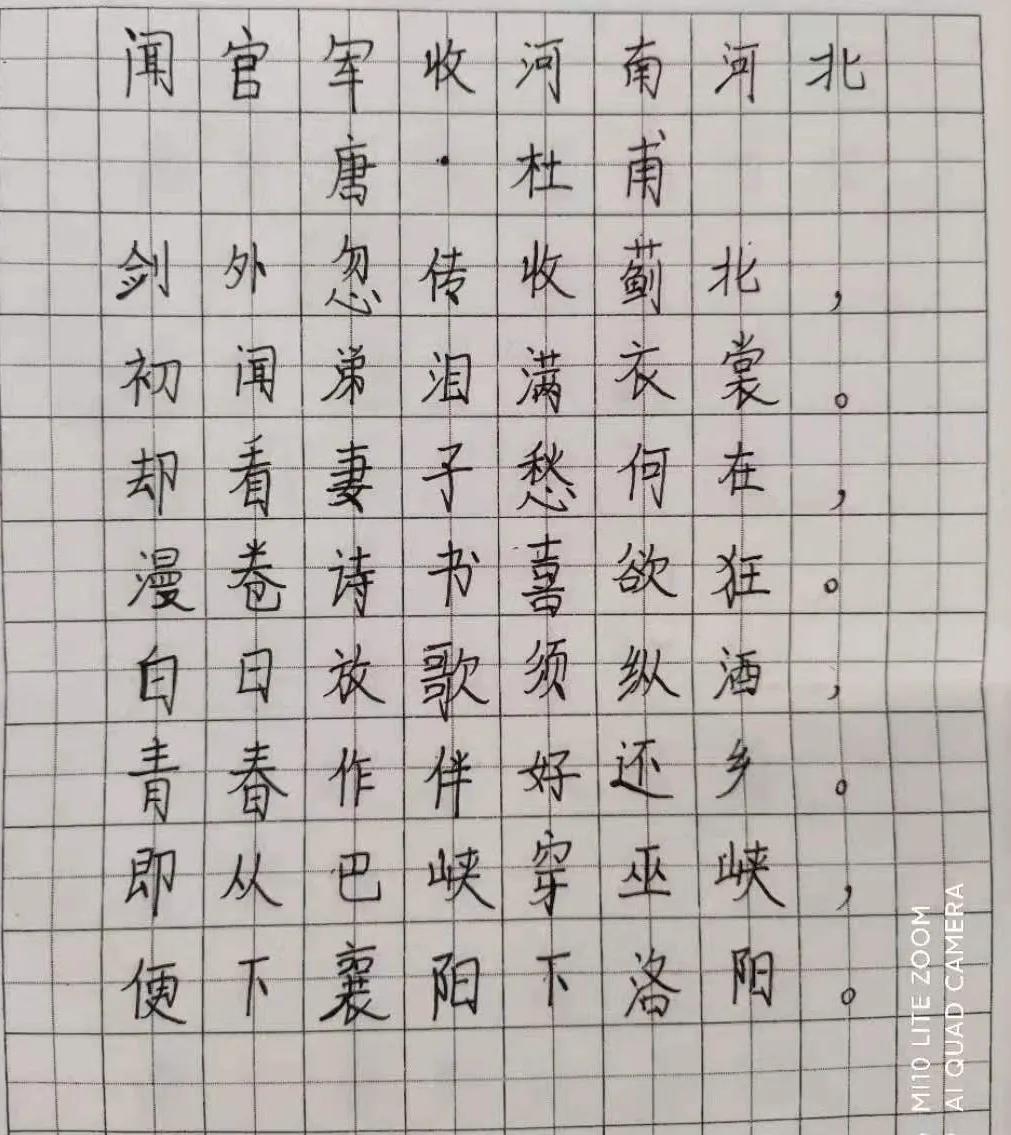 闻官军收河南河北
唐·杜甫
剑外忽传收蓟北，
初闻弟泪满衣裳。
却看妻子愁何在，
漫卷诗书喜欲狂。
白日放歌须纵酒，
青春作伴好还乡。
即从巴峡穿巫峡，
便下襄阳下洛阳。
MI10 LITE ZOOM
AI QUAD CAMERA